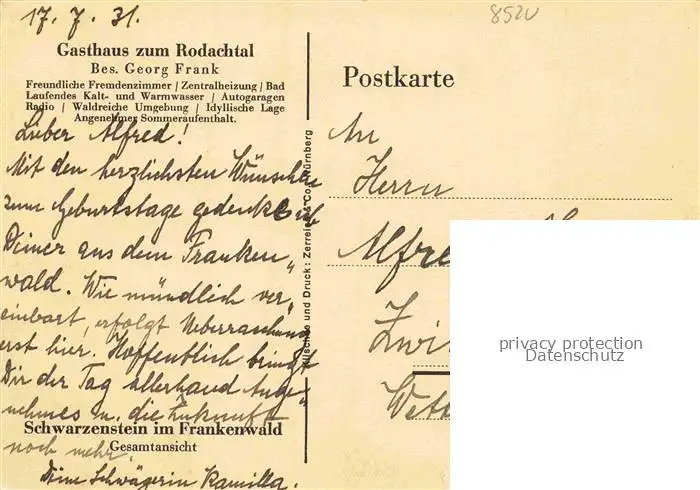 17. 7. 31.
8520
Gasthaus zum Rodachtal
Bes. Georg Frank
Freundliche Fremdenzimmer / Zentralheizung / Bad
Laufendes Kalt- und Warmwasser / Autogaragen
Radio / Waldreiche Umgebung / Idyllische Lage
Angenehmer Sommeraufenthalt.
Lieber Alfred!
Mit den herzlichsten Wünschen
zum Geburtstage gedenke ich
Deiner aus dem Franken„
wald. Wie mündlich ver„
einbart, erfolgt Ueberraschung
erst hier. Hoffentlich bringt
Dir der Tag allerhand Ange„
nehmes u. die Zukunft
Schwarzenstein im Frankenwald
Gesamtansicht
noch mehr.
Deine Schwägerin Kamilla.
Klischee und Druck: Zerreiss & Co., Nürnberg
Postkarte
An
Herrn
Alfre
Zwi
privacy protection
Datenschutz